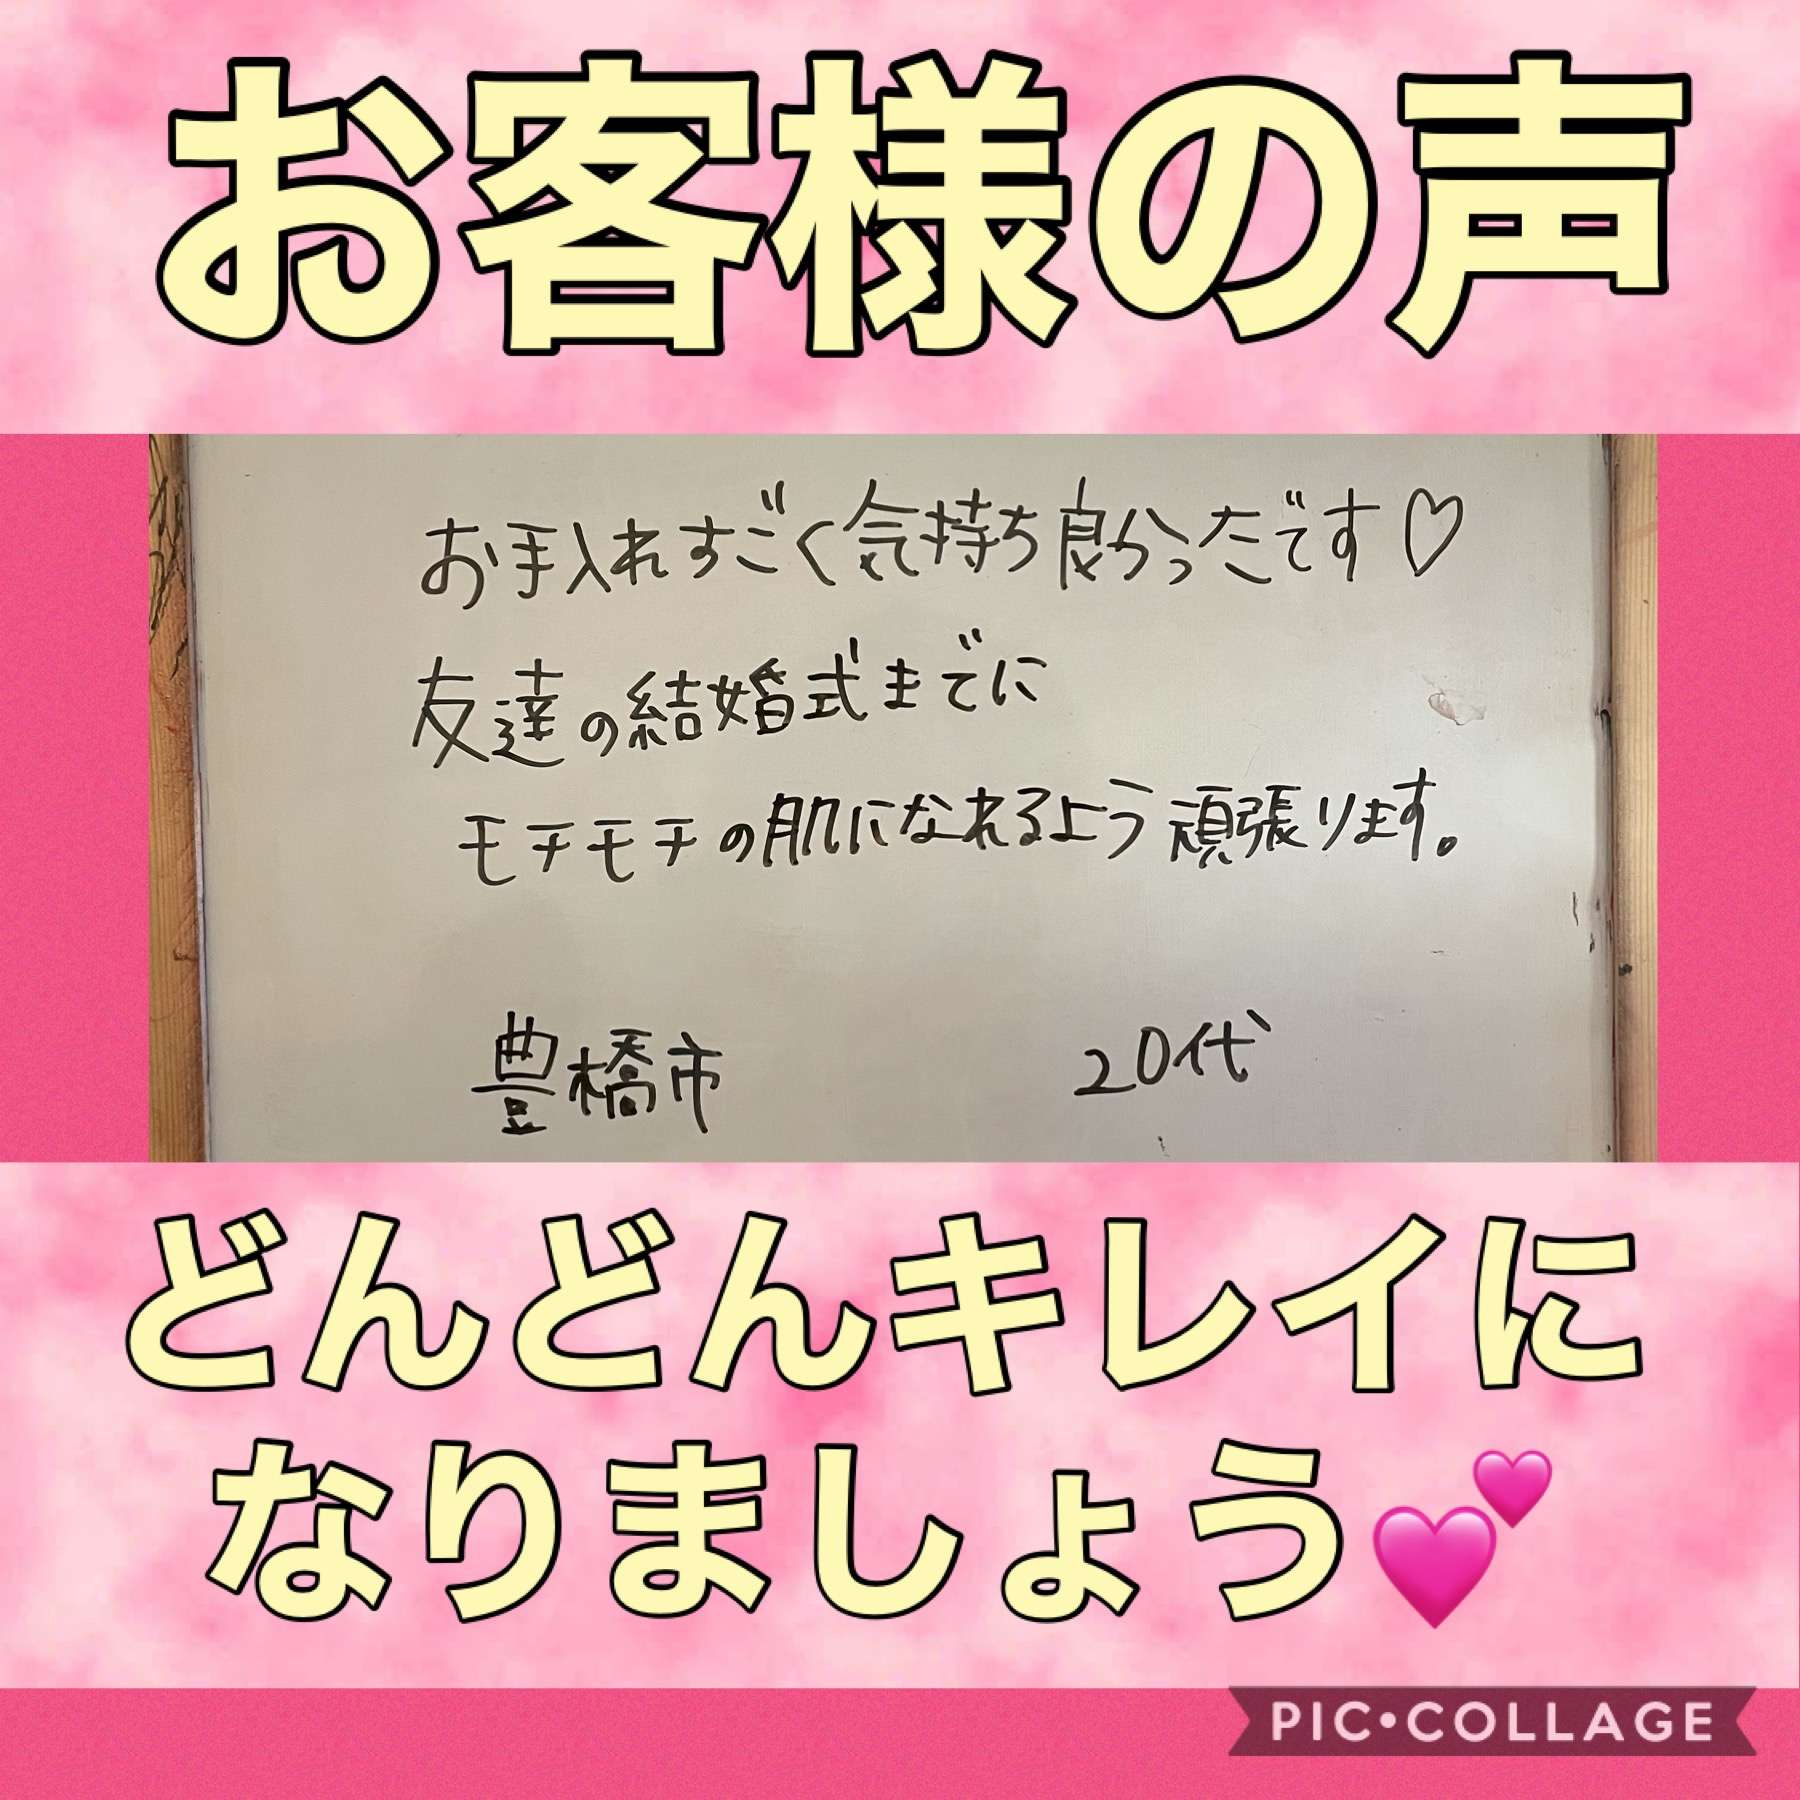 お客様の声
お手入れすごく気持ち良かったです♡
友達の結婚式までに
モチモチの肌になれるよう頑張ります。
豊橋市 20代
どんどんキレイに
なりましょう💕
PIC•COLLAGE